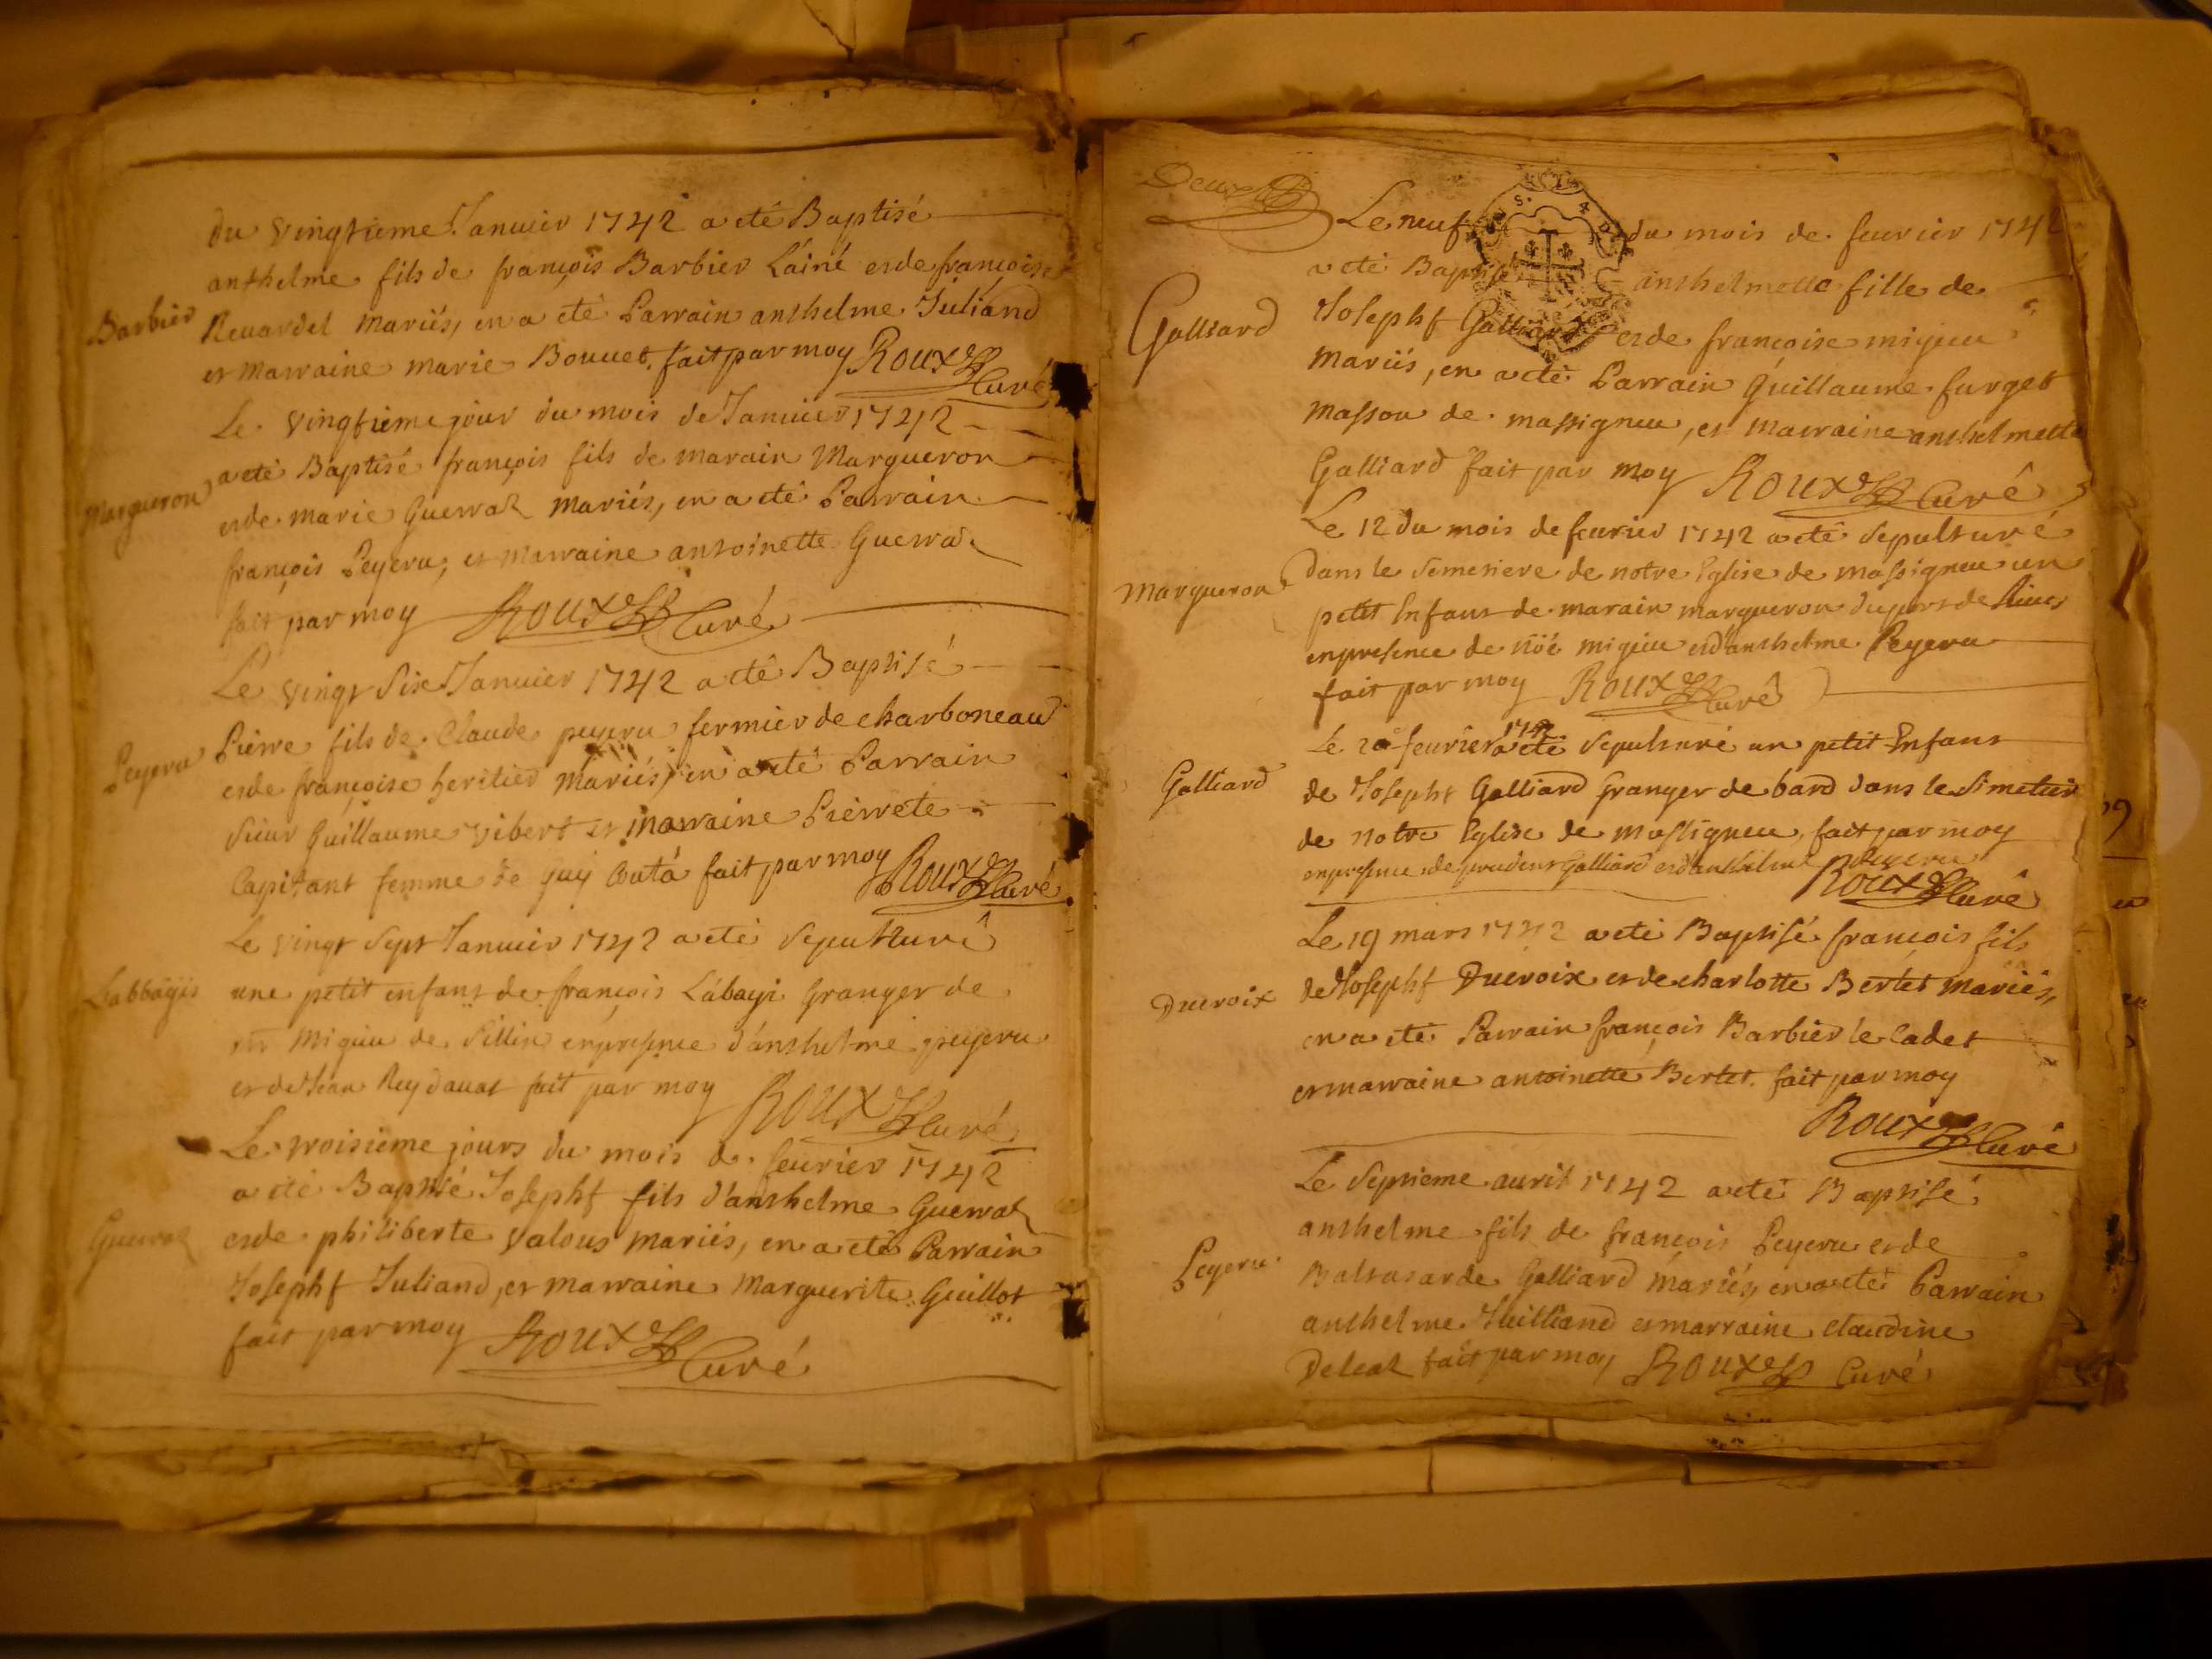 du vingtieme Januier 1742 a eté Baptisé
anthelme fils de françois Barbier Láiné et de françoise
Barbier
Reuardel mariés, en a eté Parrain anthelme Juliand
et marraine marie Bouuet, fait par moy Roux Curé
Le vingtieme jour du mois de Januier 1742
a eté Baptisé françois fils de marain Margueron
Margueron
et de marie Guerraz mariés, en a eté Parrain
françois Peyeru, et marraine antoinette Guerraz
fait par moy Roux Curé
Le vingt Six Januier 1742 a eté Baptisé
Peyeru
Pierre fils de Claude peyeru fermier de charboneau
et de françoise heritier mariés, en a eté Parrain
Sieur Guillaume vibert et marraine Pierrete
Capitant femme de Guy fait par moy Roux Curé
Le vingt Sept Januier 1742 a eté Sepulturé
Labbayis
une petit enfant de françois Lábayi Granger de
mr Migieu de Sillin en presence d'anthelme peyeru
et de Jean Reydauat fait par moy Roux Curé
Le troisieme jours du mois de feurier 1742
a eté Baptisé Josepht fils d'anthelme Guerraz
Guerraz
et de philiberte valous mariés, en a eté Parrain
Josepht Juliand, et marraine Marguerite Guillot
fait par moy Roux Curé
Deux
Le neuf du mois de feurier 1742
a eté Baptisé anthelmette fille de
Galliard
Josepht Galliard et de françoise migieu
mariés, en a eté Parrain Guillaume furget
masson de massigneu, et marraine anthelmette
Galliard fait par moy Roux Curé
Le 12 du mois de feurier 1742 a eté Sepulturé
Margueron
dans le Semetiere de notre Eglise de massigneu un
petit Enfant de marain margueron du port de
en presence de noé migieu et d'anthelme Peyeru
fait par moy Roux Curé
Le 20 feurier 1742 a eté Sepulturé un petit Enfant
Galliard
de Josepht Galliard Granger de bard dans le Simetier
de notre Eglise de massigneu, fait par moy
en presence de prudent Galliard et d'anthelme Peyeru
Roux Curé
Le 19 mars 1742 a eté Baptisé françois fils
Ducroix
de Josepht Ducroix et de charlotte Bertet mariés,
en a eté Parrain françois Barbier le Cadet
et marraine antoinette Bertet. fait par moy
Roux Curé
Le Septieme auril 1742 a eté Baptisé
anthelme fils de françois Peyeru et de
Peyeru
Baltasarde Galliard mariés, en a eté Parrain
anthelme Juilliand et marraine claudine
Deleaz fait par moy Roux Curé